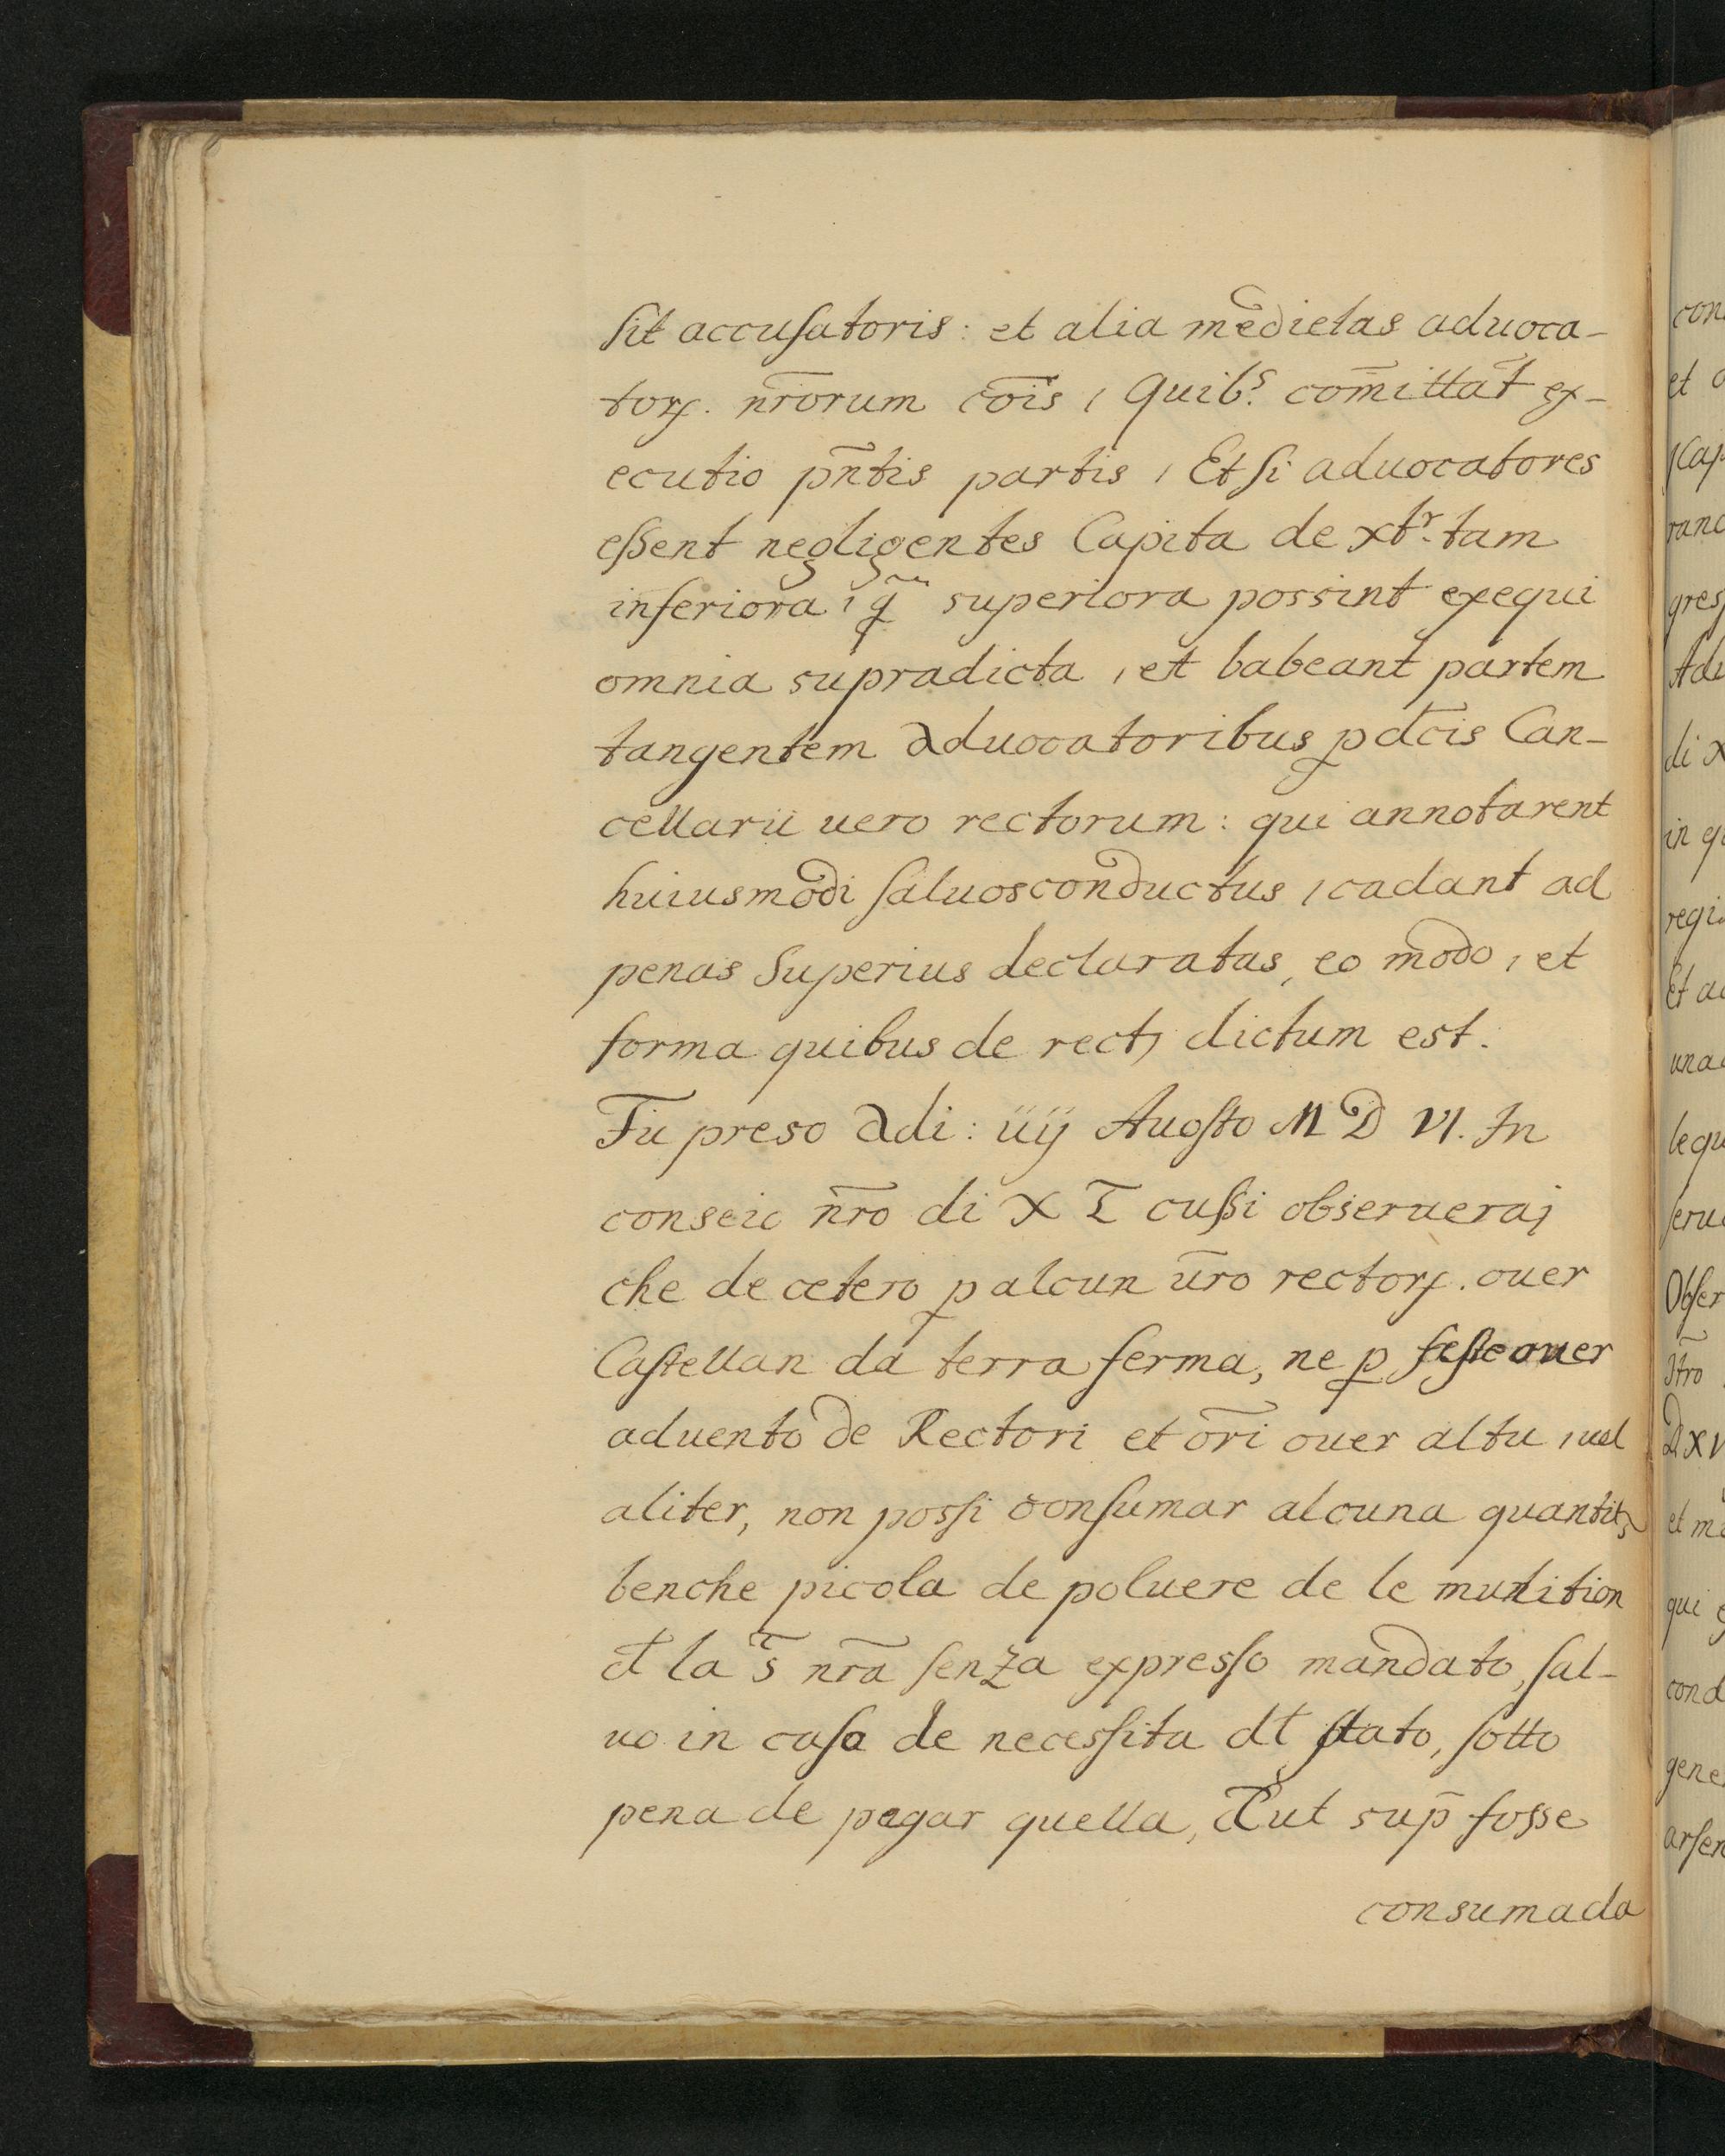 sit accusatoris: et alia medietas aduoca-
torꝝ. nr̄orum cōis, Quib.s com̄ittat̄ ex-
ecutio pn̄tis partis, Et si aduocatores
essent negligentes Capita de xb.r tam
inferiora, q̄ superiora possint exequi
omnia supradicta, et babeant partem
tangentem aduocatoribus p dc̄is Can-
cellarii uero rectorum: qui annotarent
huiusmodi saluosconductus, cadant ad
penas Superius declaratas, eo modo, et
forma quibus de rect, dictum est.
Fu preso adi: iiij Auosto M D VI. In
conseio nr̄o di X cussi obserueraj
che de cetero ꝑ alcun ūro rectorꝝ. ouer
Castellan da terra ferma, ne ꝑ feste ouer
aduento de Rectori et ōri ouer altu, uel
aliter, non possi consumar alcuna quantit,
benche picola de poluere de le munition
d̄ la s̄ nr̄a senza expresso mandato, sal-
uo in caso de necessita dł stato, sotto
pena de pagar quella, ut sup̄ fosse
consumada
con
et
Cap
ranc
gress
Adu
di X
in q
regi
Et a
una
lequ
seru
Obser
Itr̄o
D XV
et m
qui
cond
gene
arsen